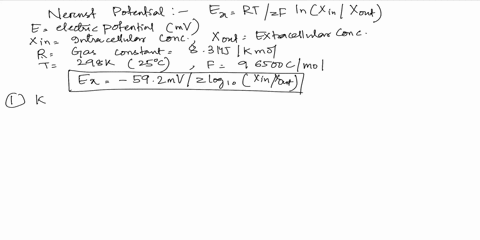 Nernst Potential :- Ex = RT/zF ln(Xin/Xout)
E = electric potential (mV)
Xin = Intracellular Conc., Xout = Extracellular Conc.
R = Gas constant = 8.31J/Kmol
T = 298K (25°C), F = 96500C/mol
Ex = -59.2mV/z log10 (Xin/Xout)
① K